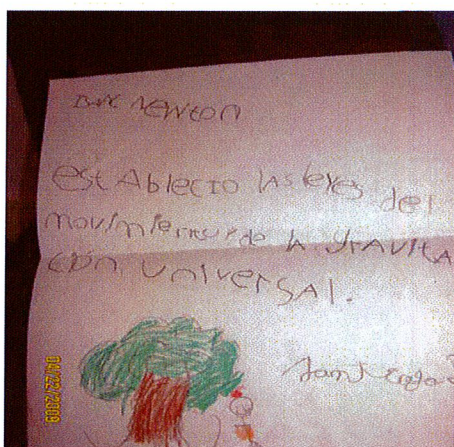 NEWTON
EstAblecio lAs leyes del
movimiento y de lA gravita
ción universAl.
04/22/2009